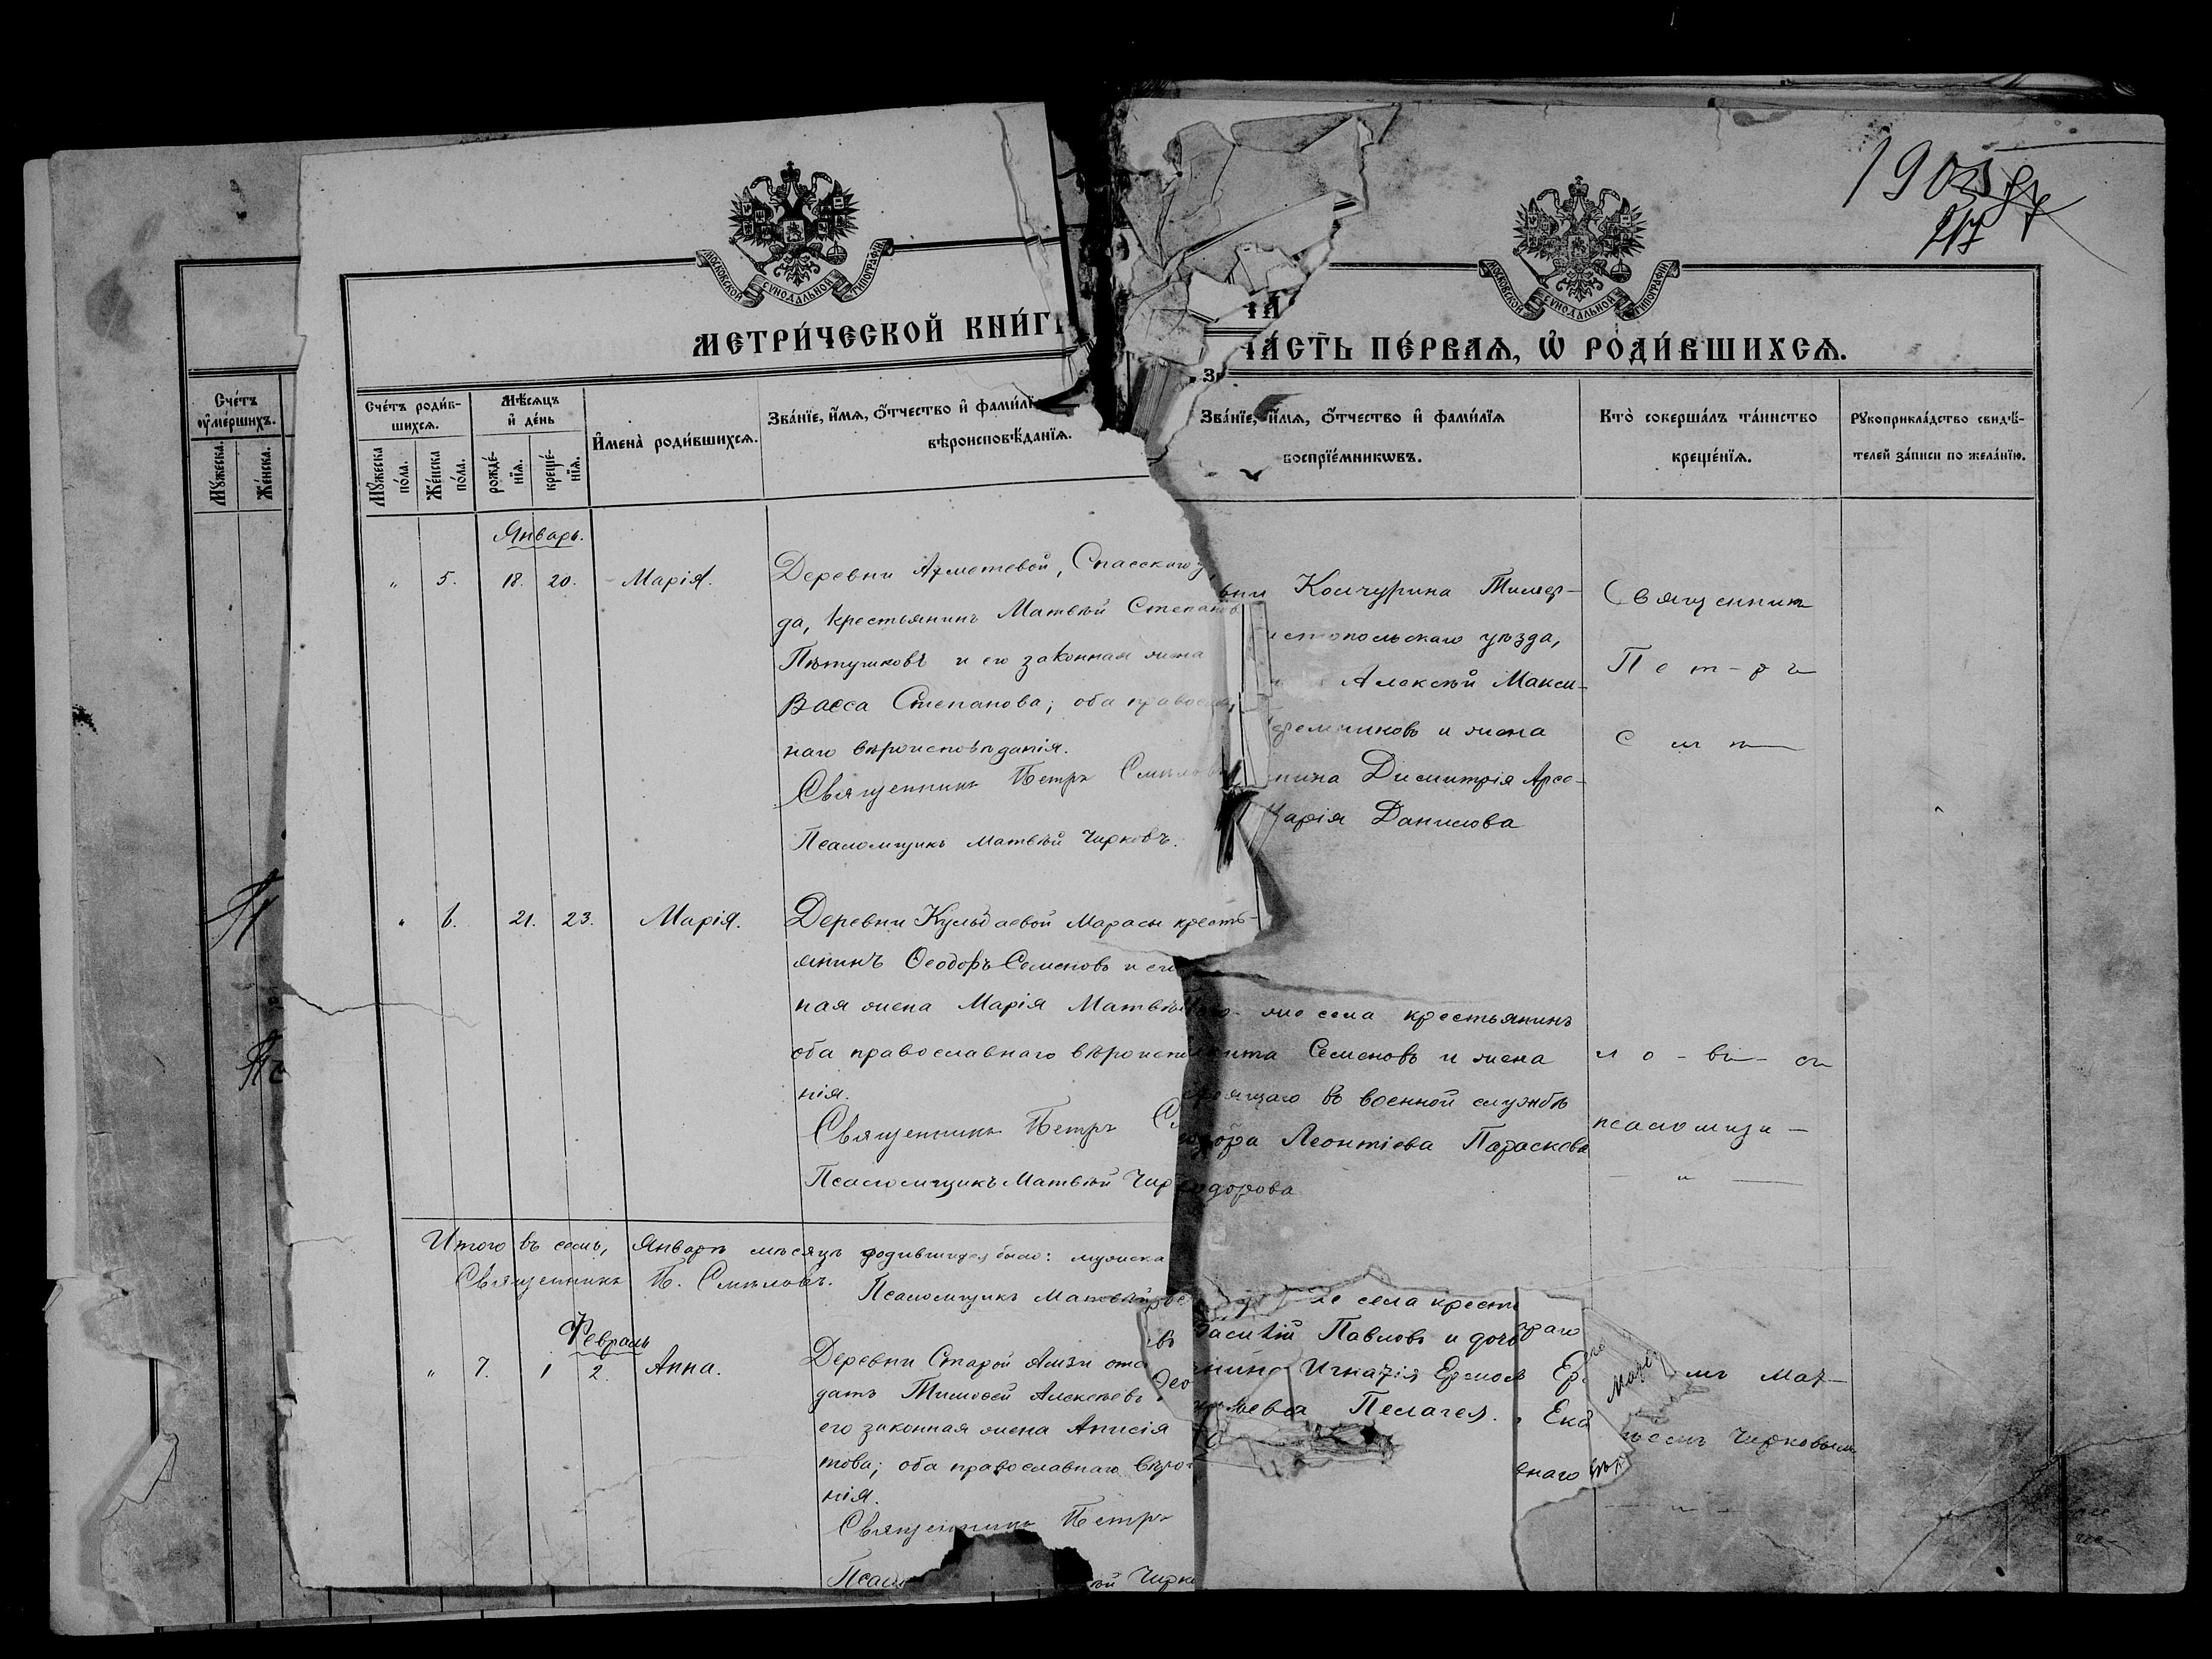 1903
МОСКОВСКОЙ СѴНОДАЛЬНОЙ ТИПОГРАФІИ
МОСКОВСКОЙ СѴНОДАЛЬНОЙ ТИПОГРАФІИ
МЕТРИ́ЧЕСКОЙ КНИ́ГИ
ЧА́СТЬ ПЕ́РВАЯ, Ѡ҆ РОДИ́ВШИХСЯ.
Сче́тъ ᲂу҆ме́ршихъ.
Мꙋ́жеска.
Же́нска.
Сче́тъ роди́в-
шихсѧ.
Мꙋ́жеска по́ла.
Же́нска по́ла.
Мѣ́сѧцъ и҆ де́нь
рожде́-нїѧ.
креще́-нїѧ.
И҆мена̀ роди́вшихсѧ.
Зва́нїе, и҆́мѧ, ѻ҆́тчество и҆ фами́лїѧ
вѣроисповѣ́данїѧ.
Зва́нїе, и҆́мѧ, ѻ҆́тчество и҆ фами́лїѧ
воспрїе́мникѡвъ.
Кто̀ соверша́лъ та́инство
креще́нїѧ.
Рꙋкоприкла́дство свидѣ́-
телей за́писи по жела́нїю.
Январь.
„ 5. 18. 20. Марія.
Деревни Ахметевой, Спасскаго у
да, крестьянинъ Матвѣй Степанов
Пѣтушковъ и его законная жена
Васса Степанова; оба православ
наго вѣроисповѣданія.
Священникъ Петръ Смѣловъ
Псаломщикъ Матвѣй Чирковъ.
вни Комчурина Тимер-
истопольскаго уѣзда,
Алексѣй Макси-
Черемниковъ и жена
нина Димитрія Арсе-
Марія Данилова
Священникъ
П е т - р ъ
С м ѣ
„ 6. 21. 23. Марія.
Деревни Кульбаевой Марасы кресть-
янинъ Ѳеодоръ Семеновъ и его
ная жена Марія Матвѣе
оба православнаго вѣроиспо
нія.
Священникъ Петръ С
Псаломщикъ Матвѣй Чир
же села крестьянинъ
кита Семеновъ и жена
стоящаго въ военной службѣ
одора Леонтіева Параскева
еодорова
л о - вы - съ
псаломщи -
— „ —
Итого въ семъ, Январѣ мѣсяцѣ родившихся было: мужска
Священникъ П. Смѣловъ.
Псаломщикъ Матвѣй
Февраль
„ 7. 1 2. Анна.
Деревни Старой Амзи отс
датъ Тимоѳей Алексѣевъ
его законная жена Анисія
това; оба православнаго вѣро
нія.
Священникъ Петръ
Псал й Чирк
же села крестья
Василій Павловъ и доч
нина Игнатія Ермол
Пелагея.
Ека
внаго вѣр
мъ Мат-
ѣемъ Чирковымъ
— „ —